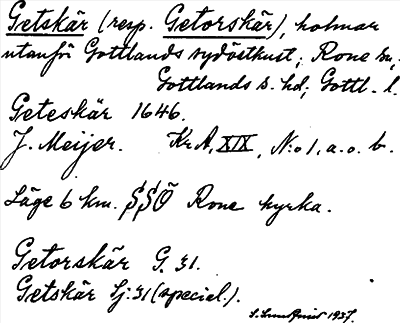 Getskär (resp. Getorskär), holmar
utanför Gottlands sydostkust; Rone sn,
Gottlands s. hd, Gottl. l.
Geteskär 1646.
J. Meijer. Kr A, XIX, N:o 1, a. o. b.
Läge 6 km. SSÖ Rone kyrka.
Getorskär G. 31.
Getskär Sj: 31 (special.).
1937.